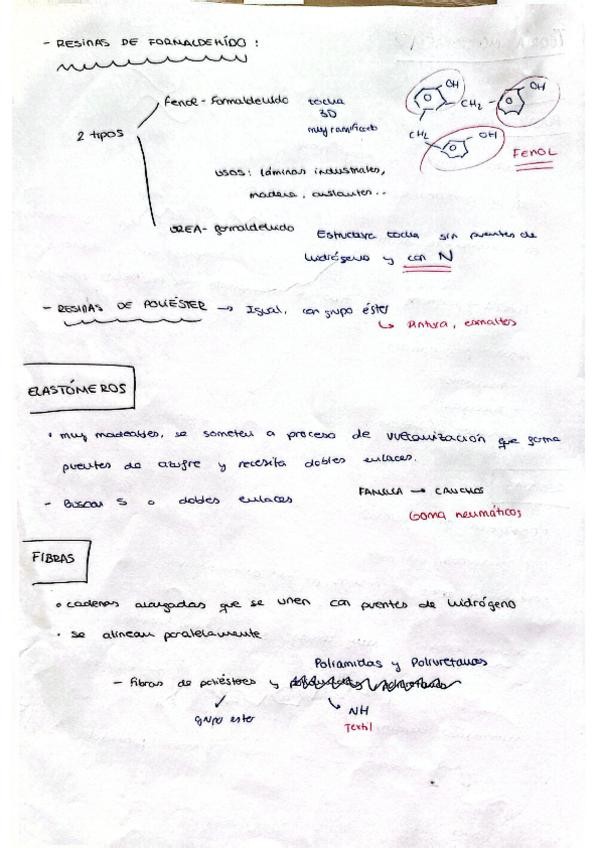 - RESINAS DE FORMALDEHÍDO :
Fenol - formaldehído
2 tipos
tocha
3D
muy ramificado
OH
CH₂
OH
CH₂
OH
FENOL
USOS: láminas industriales,
madera, aislantes...
UREA - formaldehído
Estructura tocha sin puentes de
hidrógeno y con N
- RESINAS DE POLIÉSTER → Igual, con grupo éster
↳ Pintura, esmaltes
ELASTÓMEROS
• muy maleables, se someten a proceso de vulcanización que forma
puentes de azufre y necesita dobles enlaces.
- Buscar S o dobles enlaces
FAMILIA → CAUCHOS
Goma neumáticos
FIBRAS
• cadenas alargadas que se unen con puentes de hidrógeno
• se alinean paralelamente
Poliamidas y Poliuretanos
- Fibras de poliésteres y
grupo ester
↳ NH
Textil